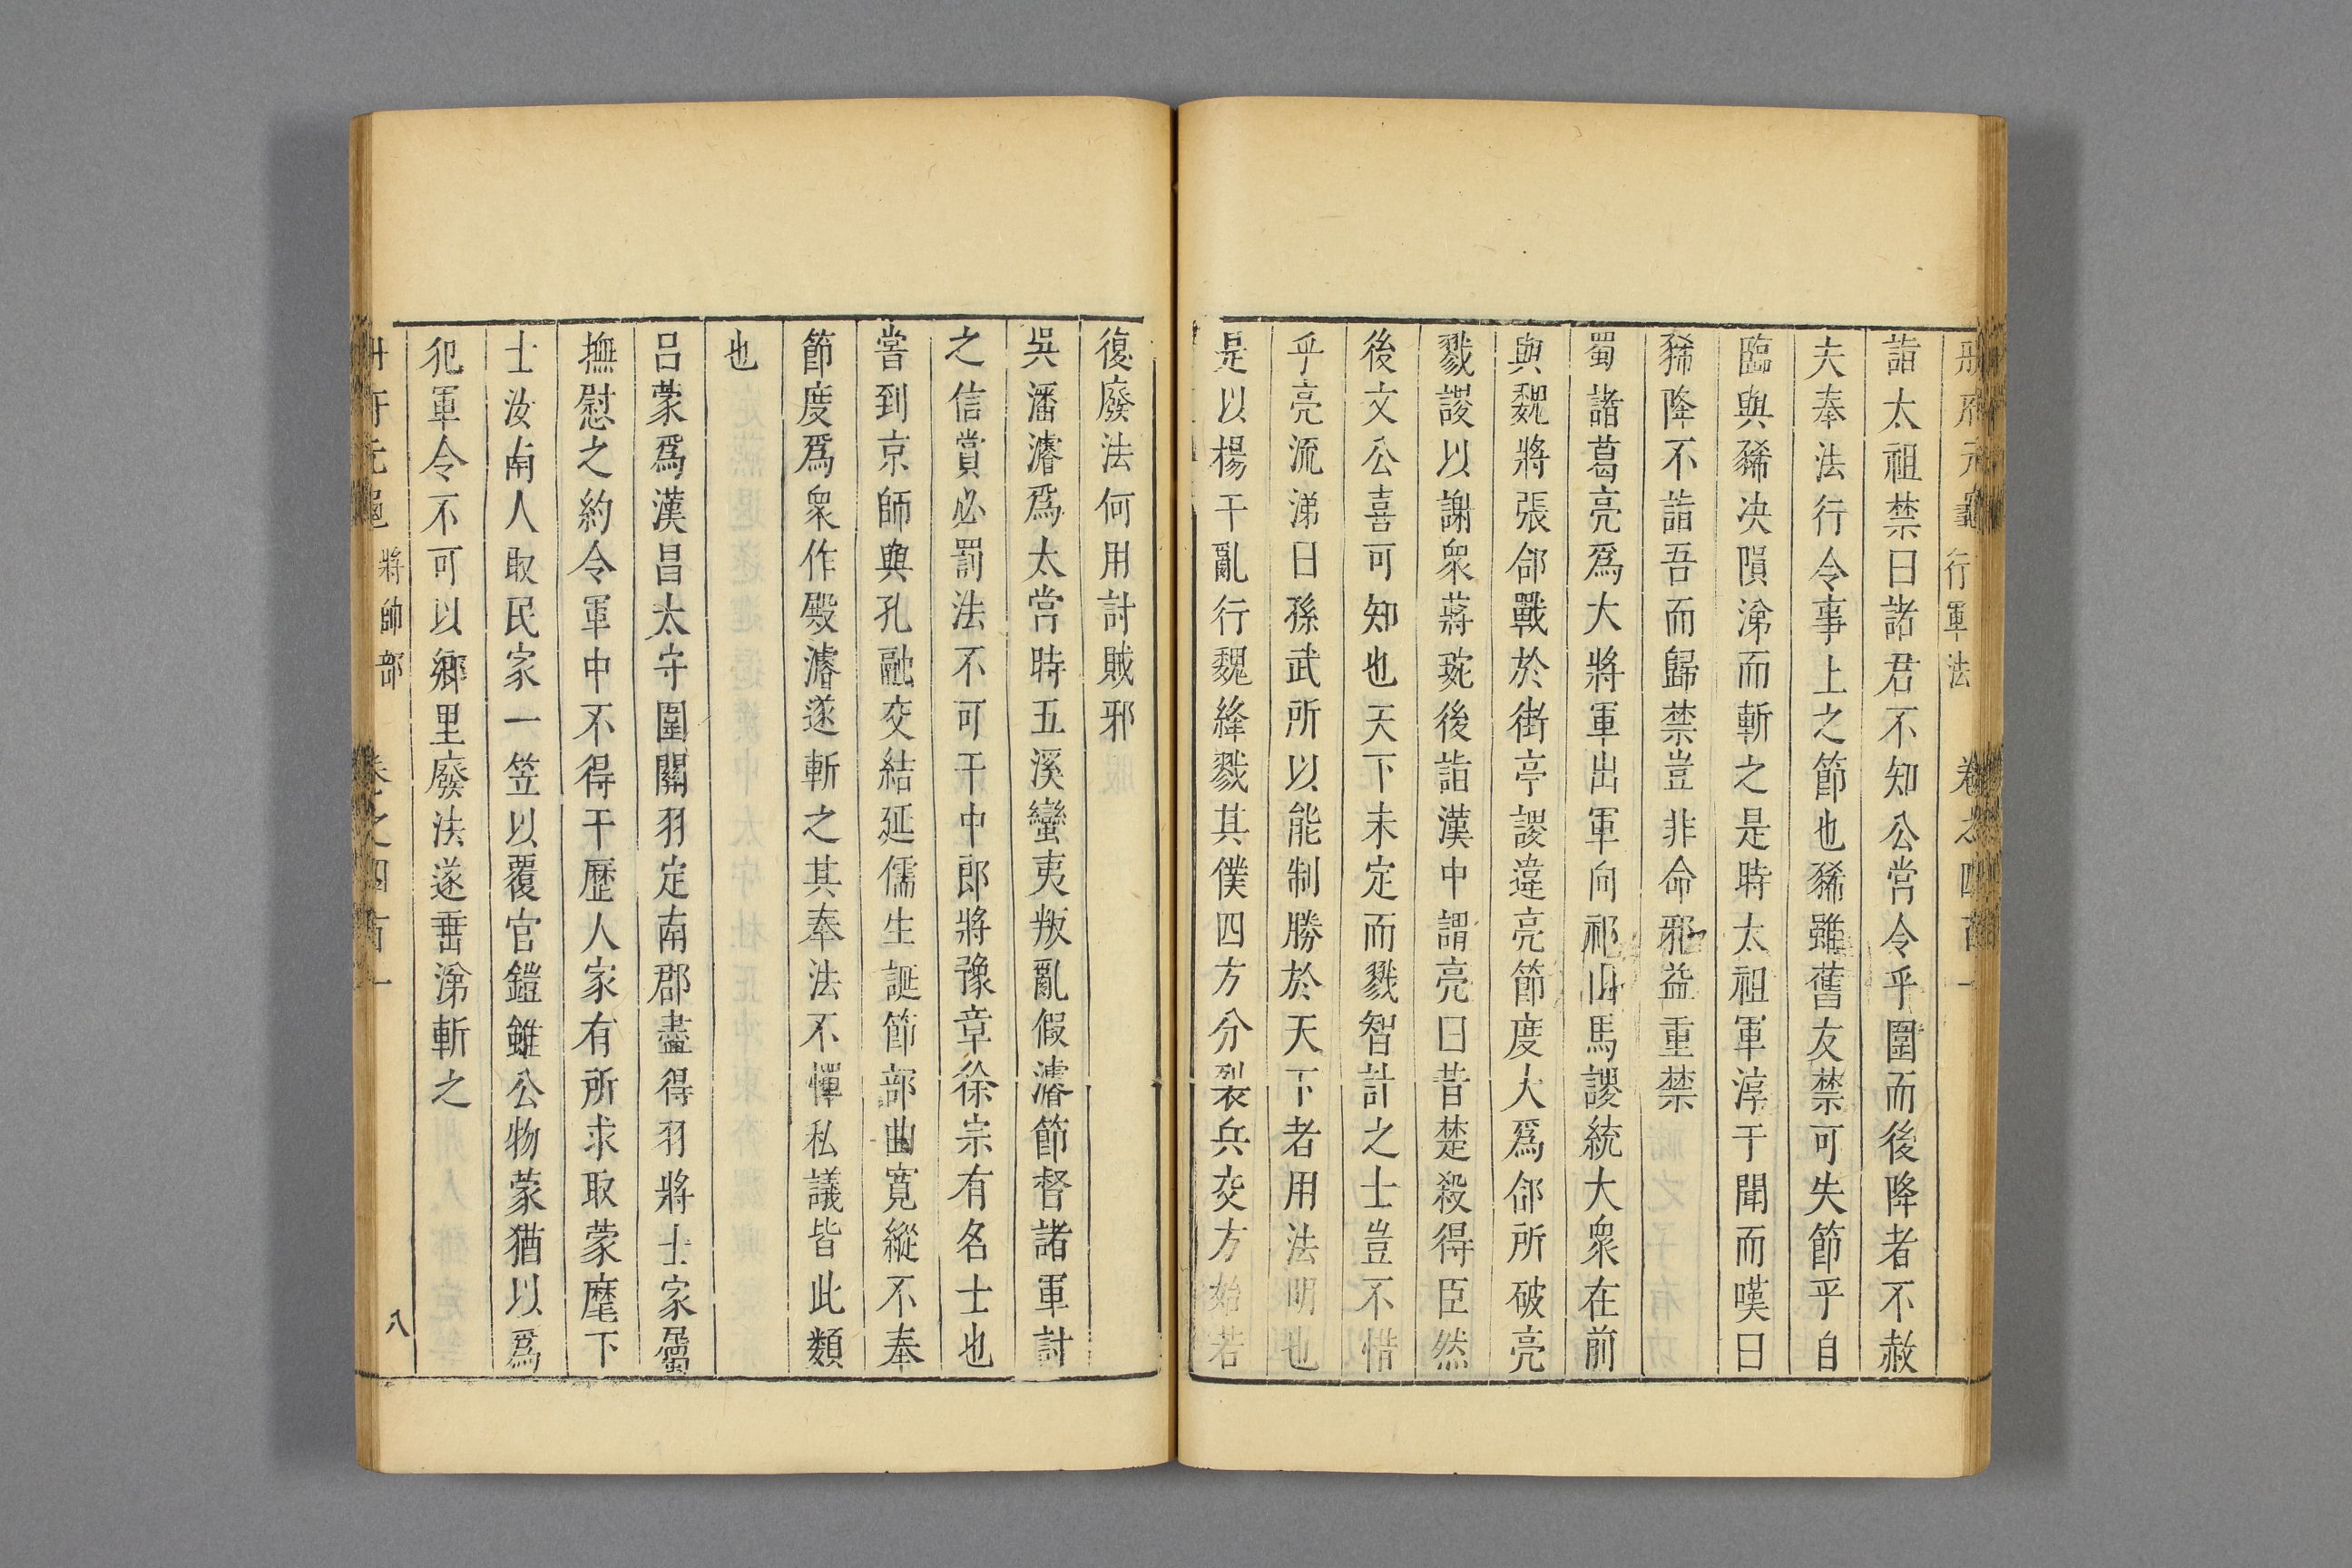 冊府元龜 行軍法 卷之四百一
詣太祖禁曰諸君不知公嘗令乎圍而後降者不赦
夫奉法行令事上之節也豨雖舊友禁可失節乎自
臨與豨决隕涕而斬之是時太祖軍淳于聞而嘆曰
豨降不詣吾而歸禁豈非命邪益重禁
蜀諸葛亮爲大將軍出軍向祁山馬謖統大衆在前
與魏將張郃戰於街亭謖違亮節度大爲郃所破亮
戮謖以謝衆蔣琬後詣漢中謂亮曰昔楚殺得臣然
後文公喜可知也天下未定而戮智計之士豈不惜
乎亮流涕曰孫武所以能制勝於天下者用法明也
是以楊干亂行魏絳戮其僕四方分裂兵交方始若
復廢法何用討賊邪
吳潘濬爲太常時五溪蠻夷叛亂假濬節督諸軍討
之信賞必罰法不可干中郎將豫章徐宗有名士也
嘗到京師與孔融交結延儒生誕節部曲寬縱不奉
節度爲衆作殿濬遂斬之其奉法不憚私議皆此類
也
呂蒙爲漢昌太守圍關羽定南郡盡得羽將士家屬
撫慰之約令軍中不得干歷人家有所求取蒙麾下
士汝南人取民家一笠以覆官鎧雖公物蒙猶以爲
犯軍令不可以鄉里廢法遂垂涕斬之
冊府元龜 將帥部 卷之四百一 八